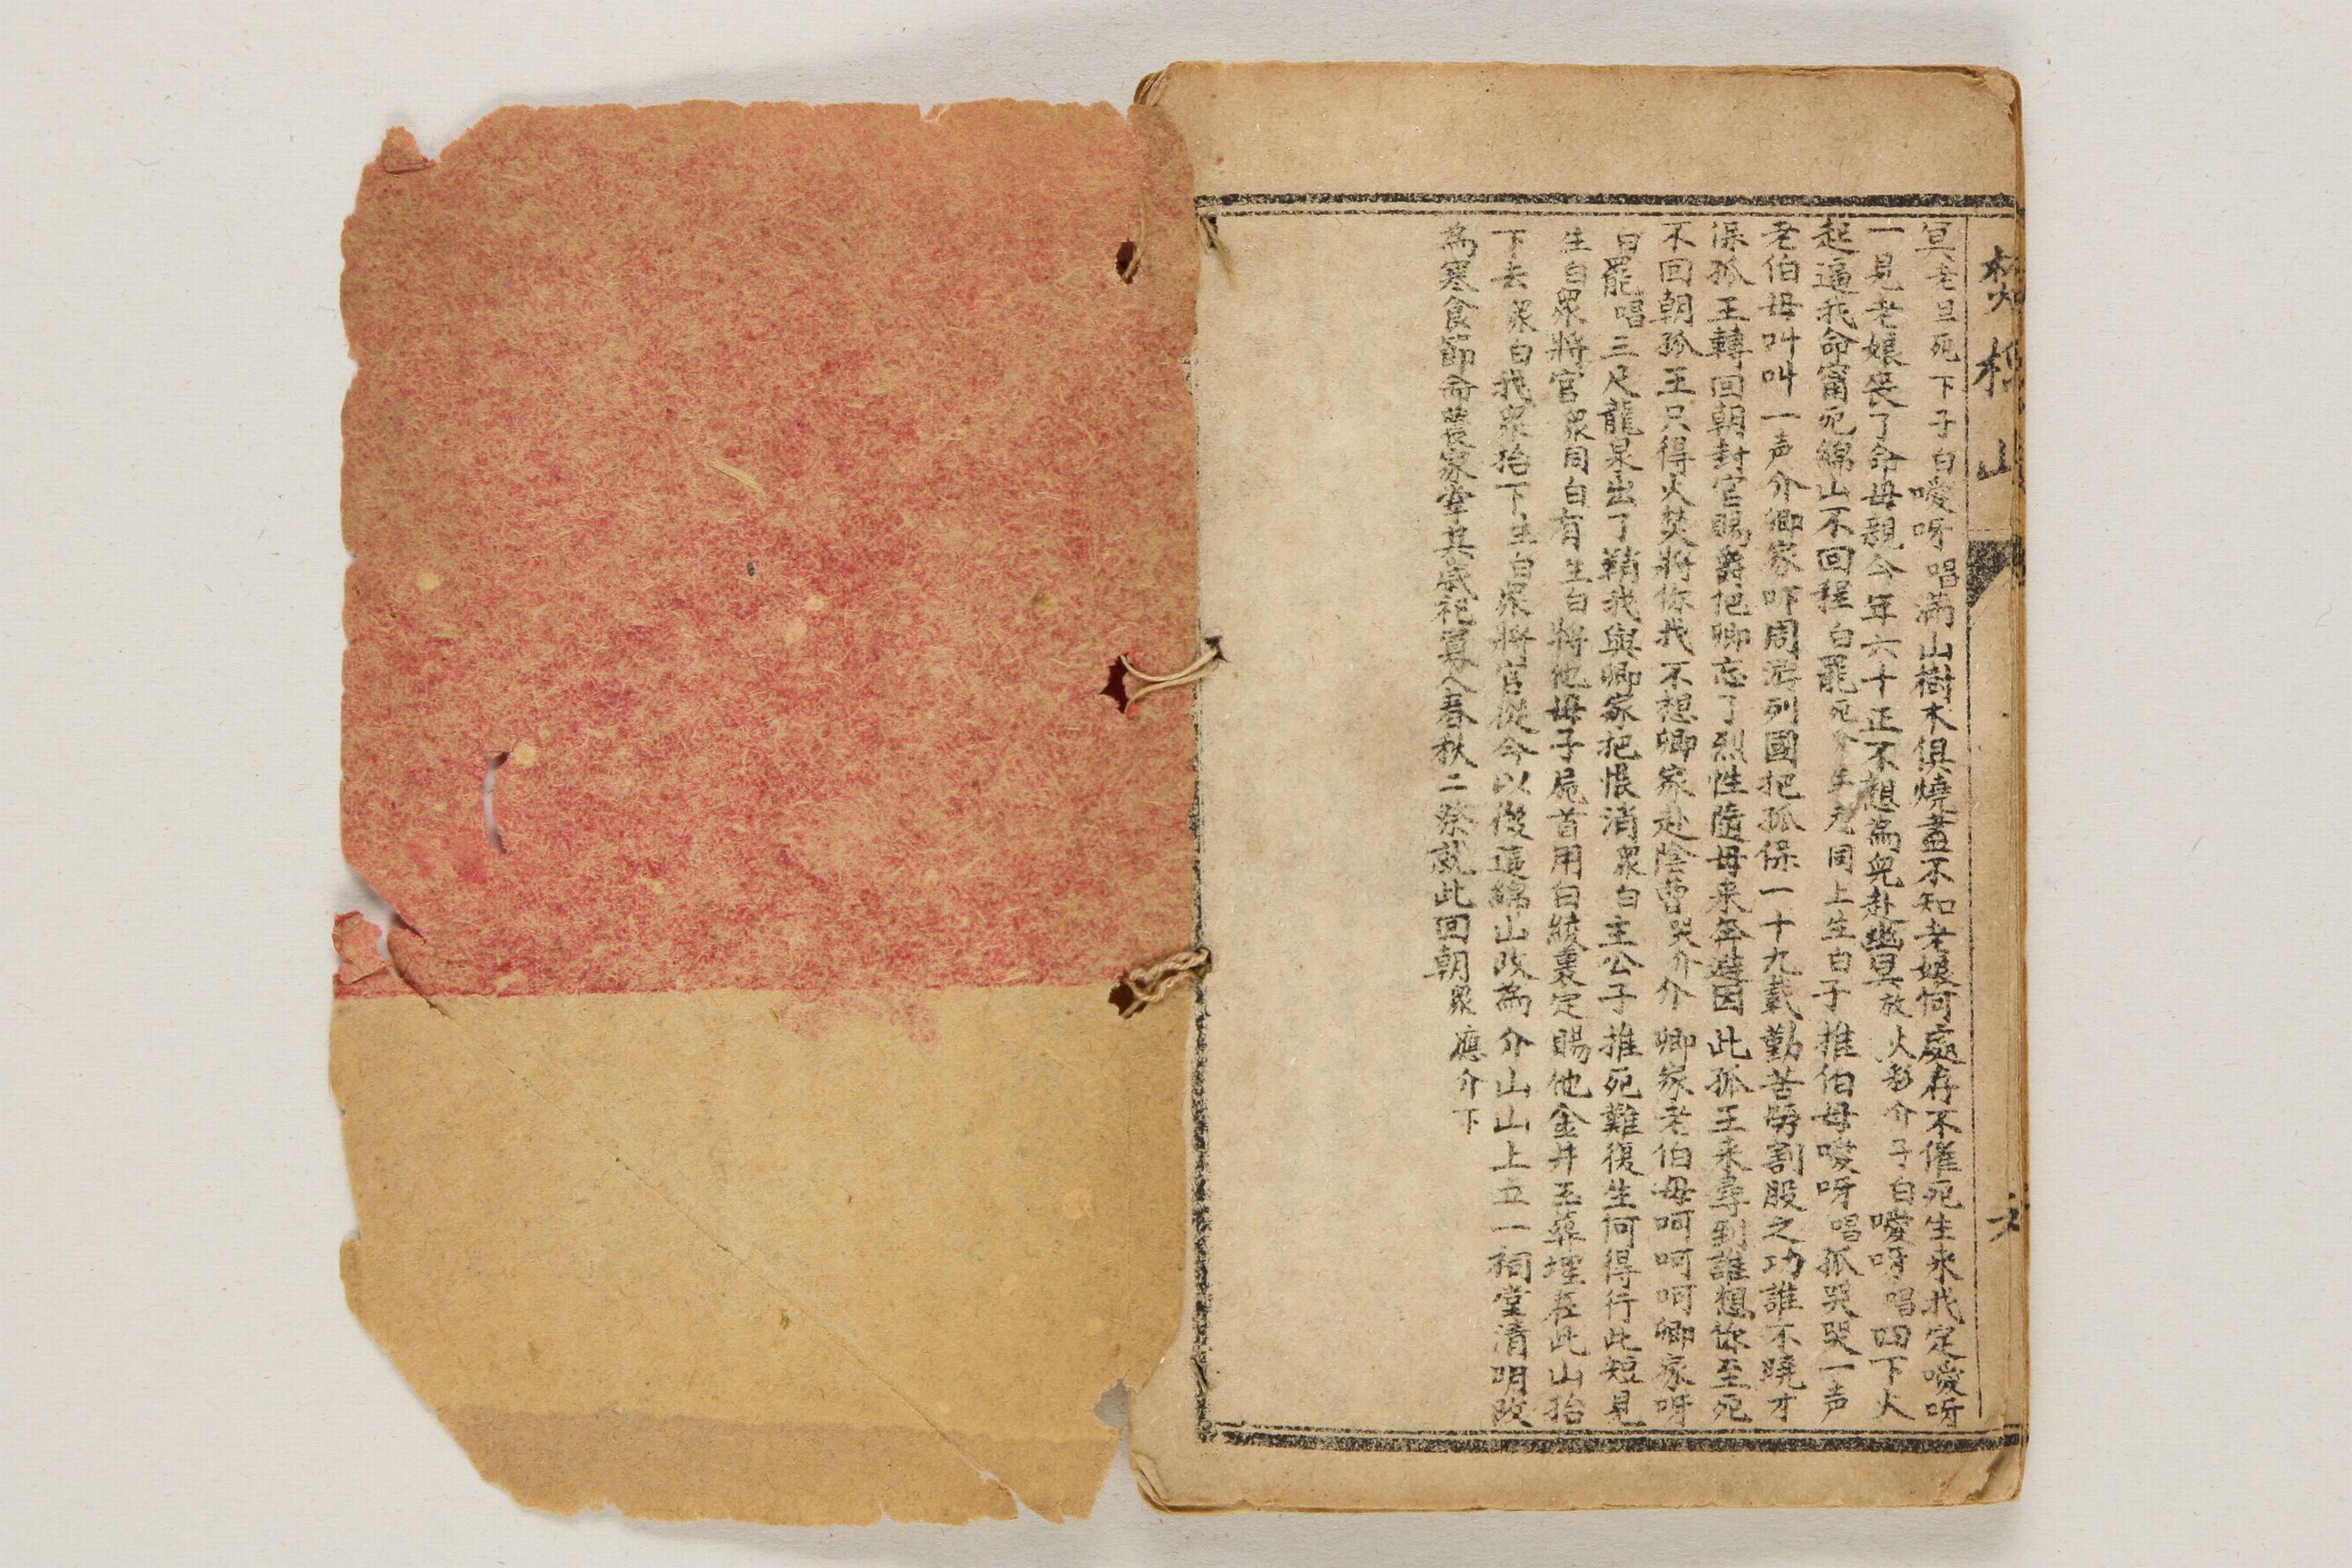 焚棉山
冥老旦死下子白噯呀唱滿山樹木俱燒盡不知老娘何處存不催死生來我定噯呀
一見老娘喪了命母親今年六十正不想為兒赴幽冥放火介子白噯呀唱四下火
起逼我命窗死綿山不回程白罷死介生老同上生白子推伯母噯呀唱孤哭哭一声
老伯母叫叫一声介卿家吓周游列國把孤保一十九載勤苦勞割股之功誰不曉才
保孤王轉回朝封官賜爵把卿忘了烈性隨母來避因此孤王來尋到誰想你至死
不回朝孤王只得火焚將你找不想卿家赴陰曹哭介介卿家老伯母呵呵呵卿家呀
白罷唱三尺龍泉出了鞘我與卿家把恨消衆白主公子推死難復生何得行此短見
生白衆將官衆同白有生白將他母子屍首用白綾裹定賜他金井玉葬埋在此山抬
下去衆白我衆抬下生白衆將官從今以後這綿山改為介山山上立一祠堂清明改
為寒食節命農家葦其歲祀篡入春秋二祭就此回朝衆應介下